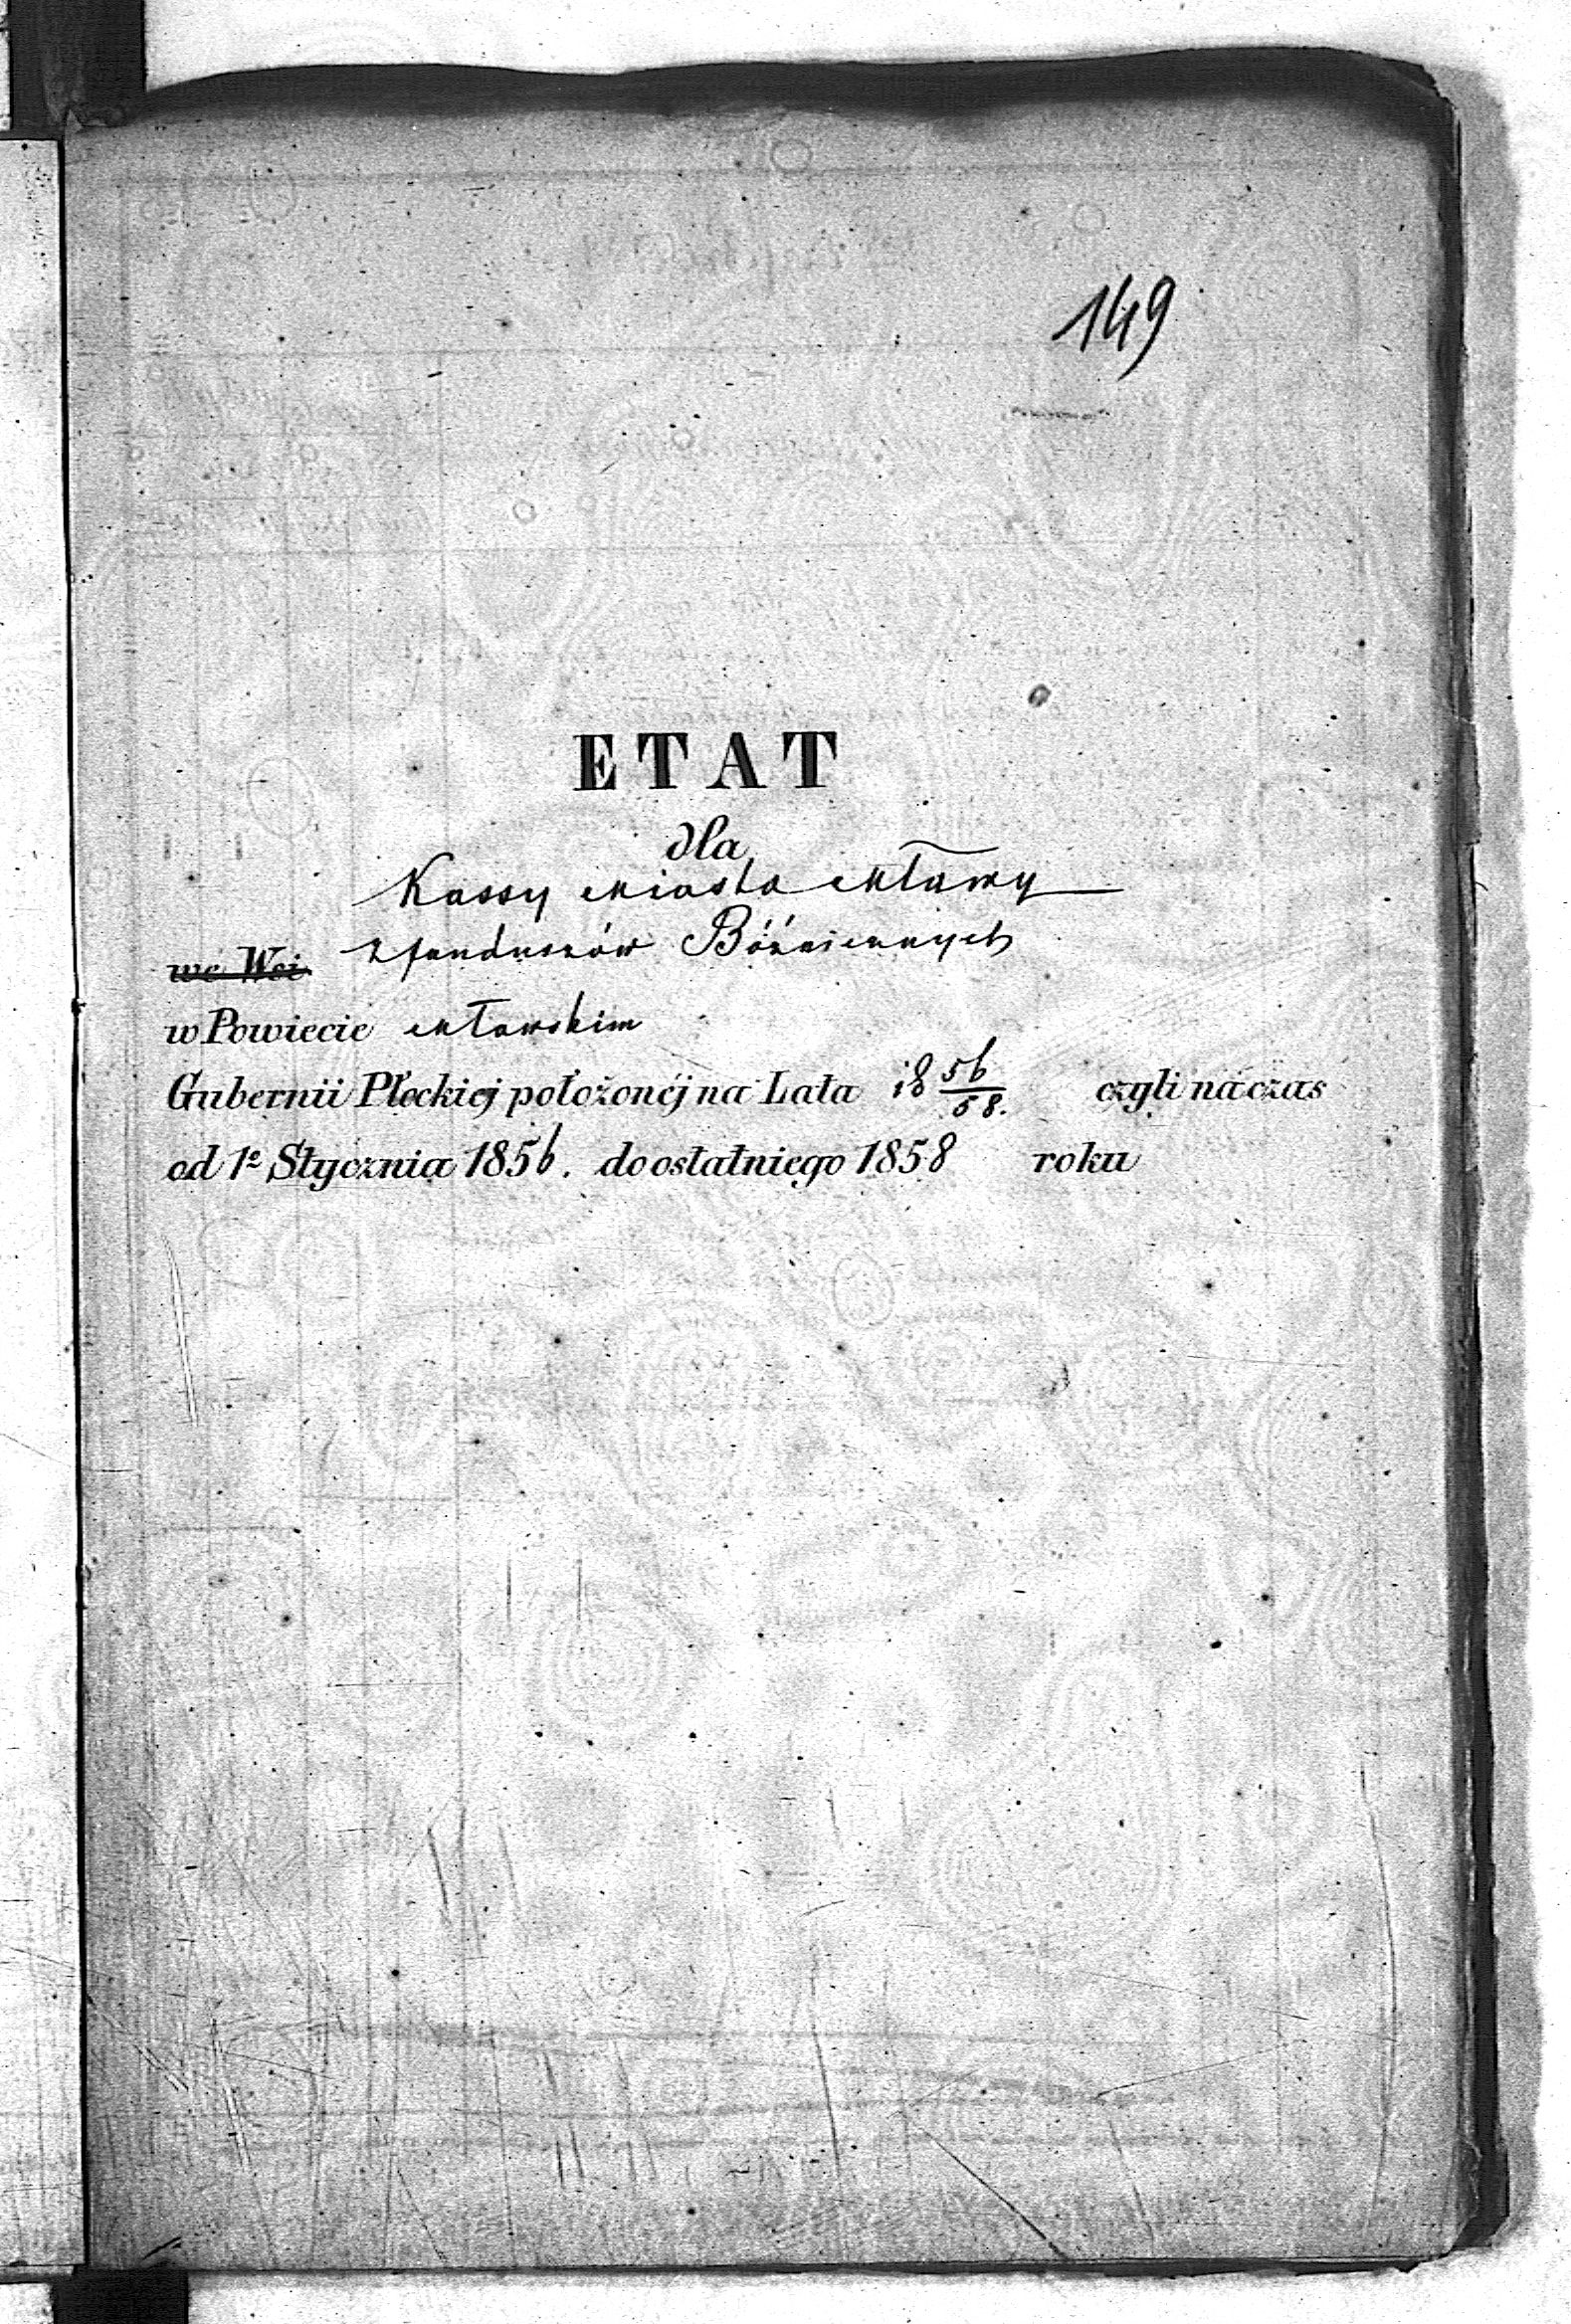 149
ETAT
dla
Kassy Miasta Mławy
z funduszów Bóżniczych
we Wsi
w Powiecie Mławskim
Gubernii Płockiej położonéj na Lata 18 56/58. czyli na czas
od 1º Stycznia 1856. do ostatniego 1858 roku